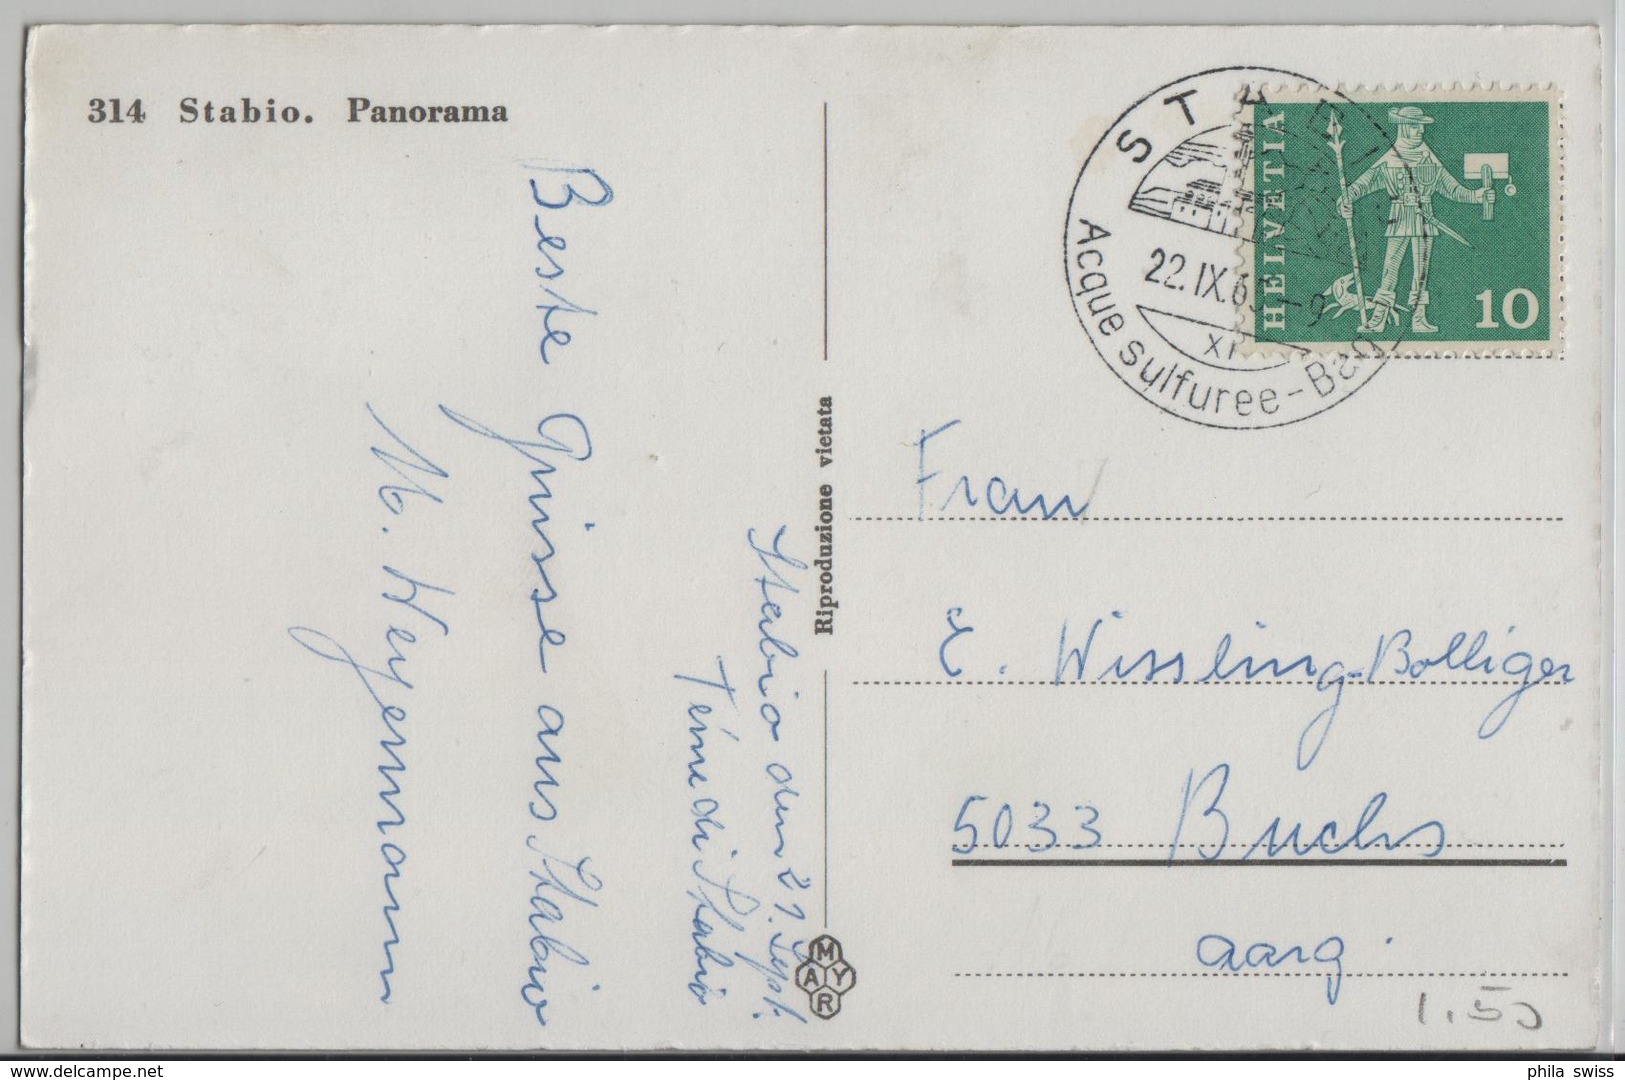 314 Stabio. Panorama
Stabio den 21. Sept.
Terme di Stabio
Beste Grüsse aus Stabio
M. Weyermann
Riproduzione vietata
MAYR
STABIO
22.IX.6 -9
XI
Acque sulfuree-Bag
HELVETIA
10
Frau
E. Wissling-Bolliger
5033 Buchs
Aarg.
1.50
delcampe.net
phila swiss